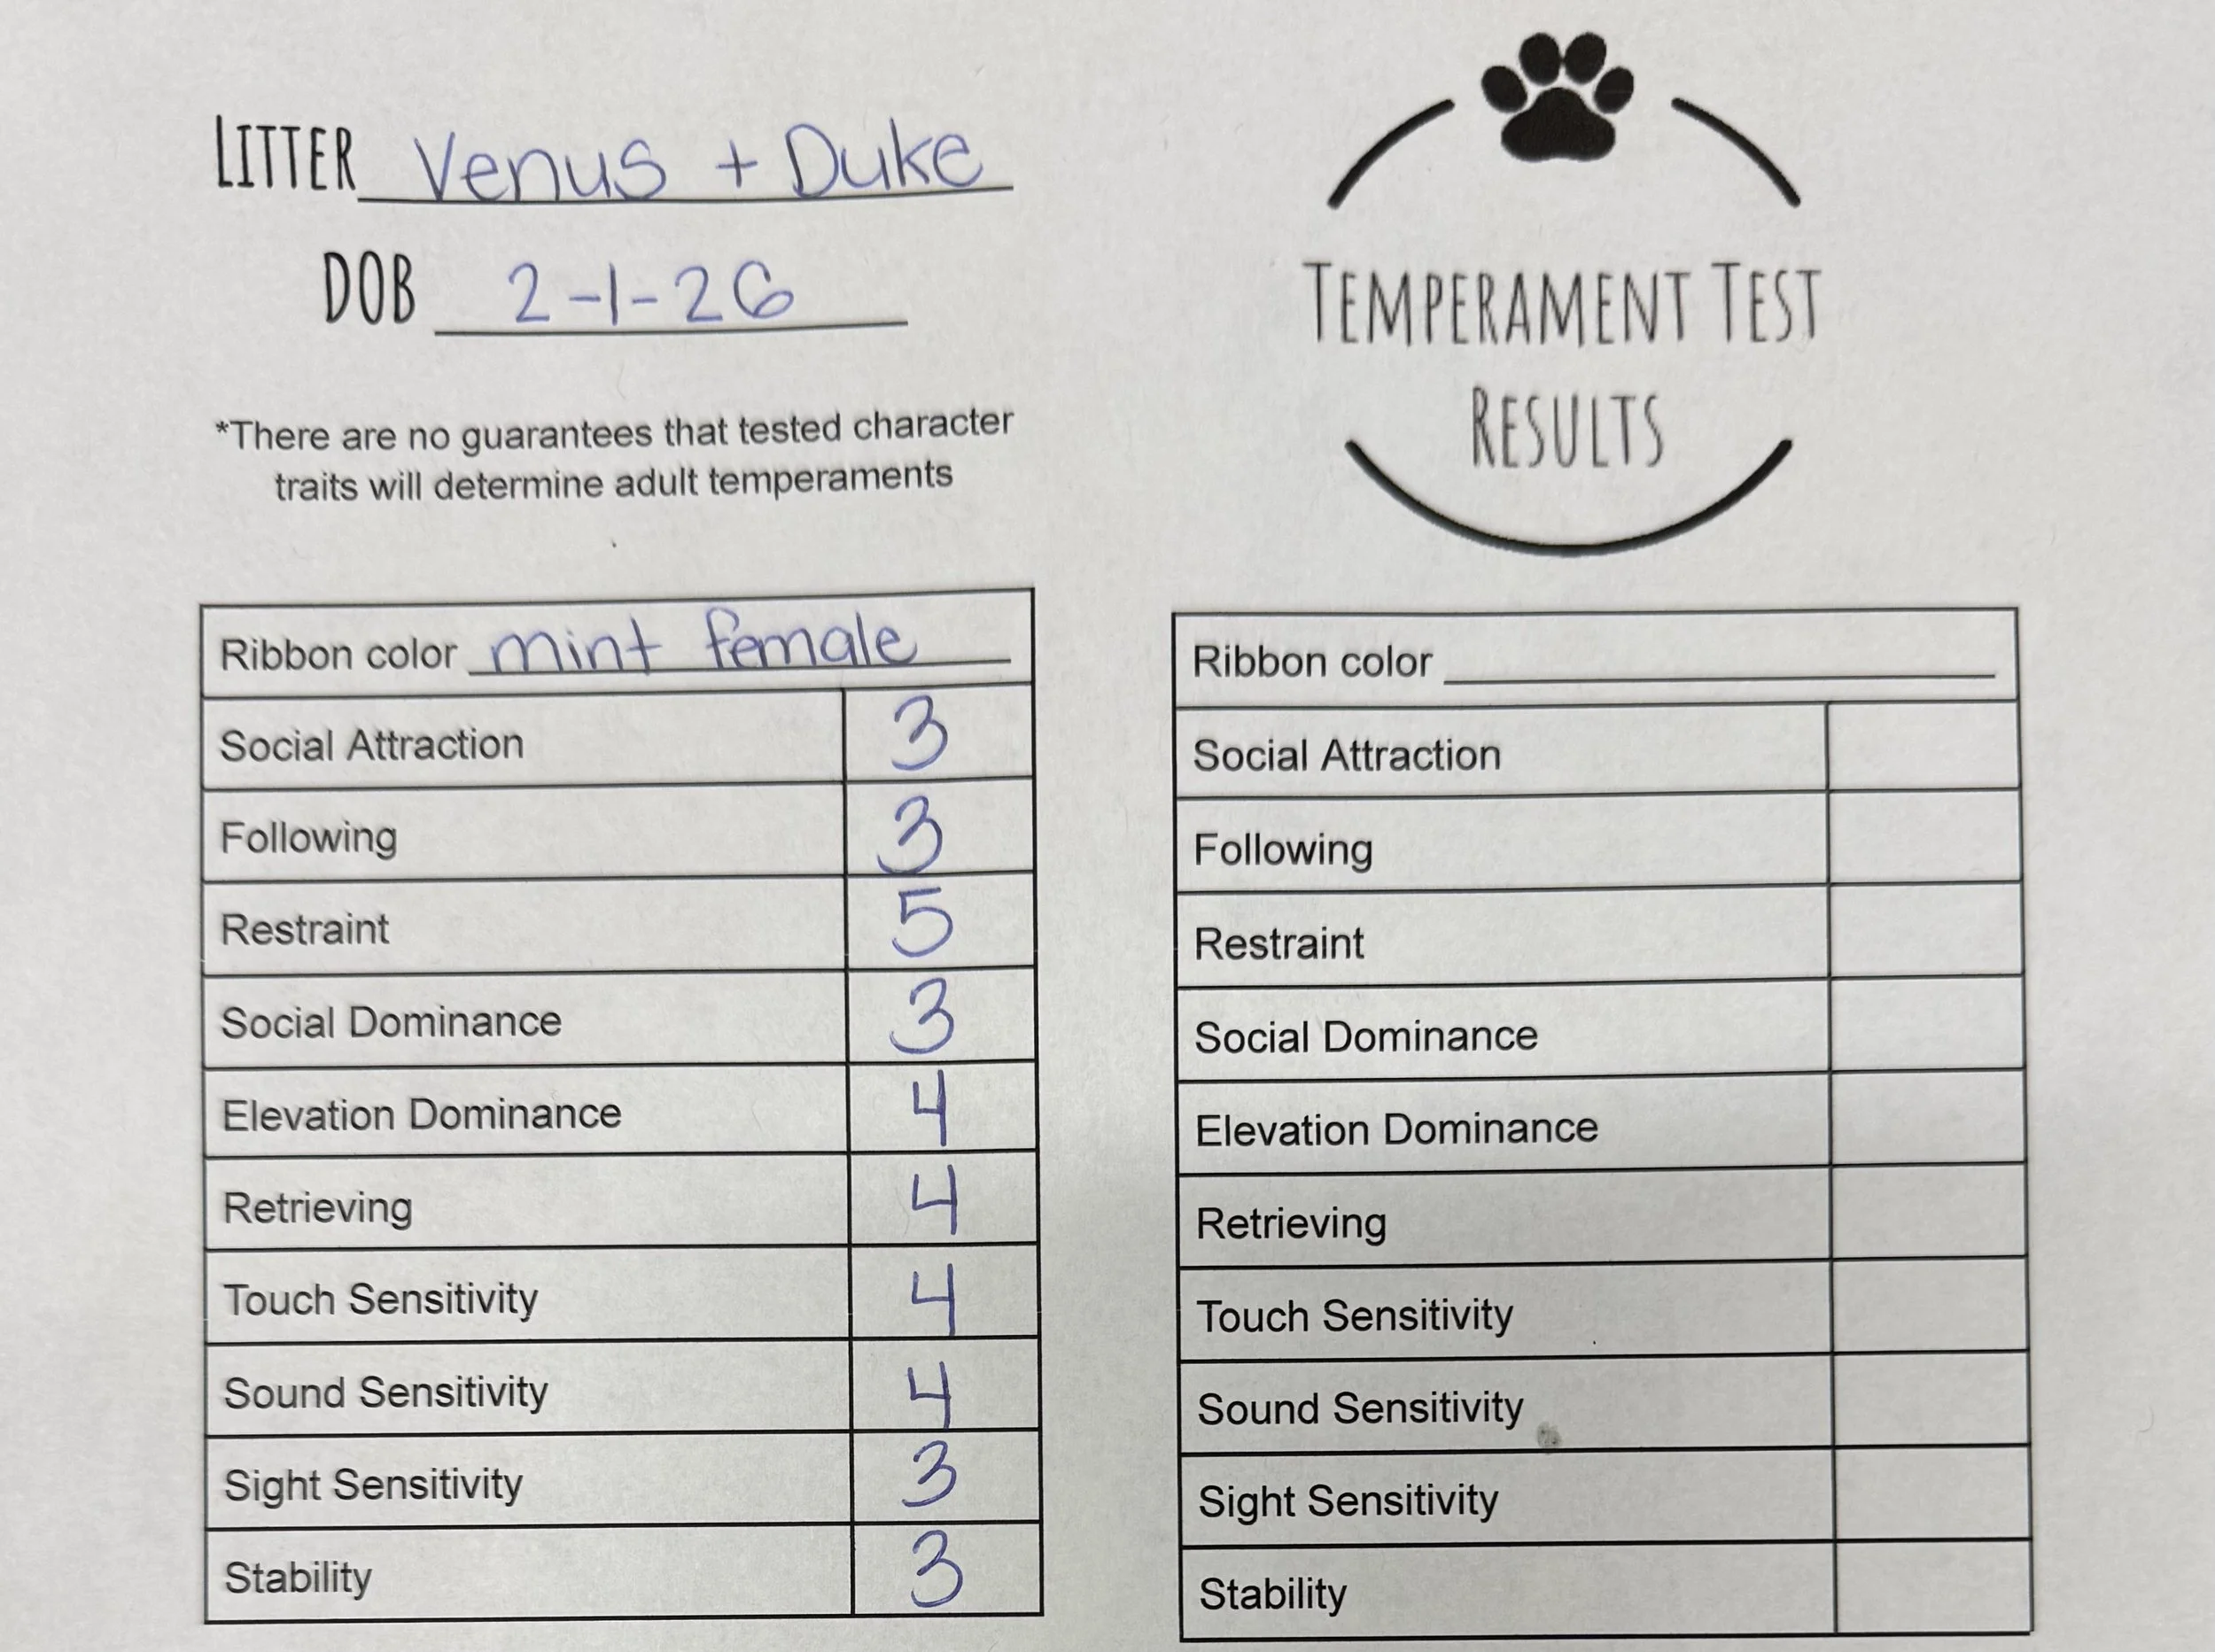 LITTER Venus + Duke
DOB 2-1-26
*There are no guarantees that tested character
traits will determine adult temperaments
TEMPERAMENT TEST
RESULTS
Ribbon color mint female
Social Attraction 3
Following 3
Restraint 5
Social Dominance 3
Elevation Dominance 4
Retrieving 4
Touch Sensitivity 4
Sound Sensitivity 4
Sight Sensitivity 3
Stability 3
Ribbon color
Social Attraction
Following
Restraint
Social Dominance
Elevation Dominance
Retrieving
Touch Sensitivity
Sound Sensitivity
Sight Sensitivity
Stability